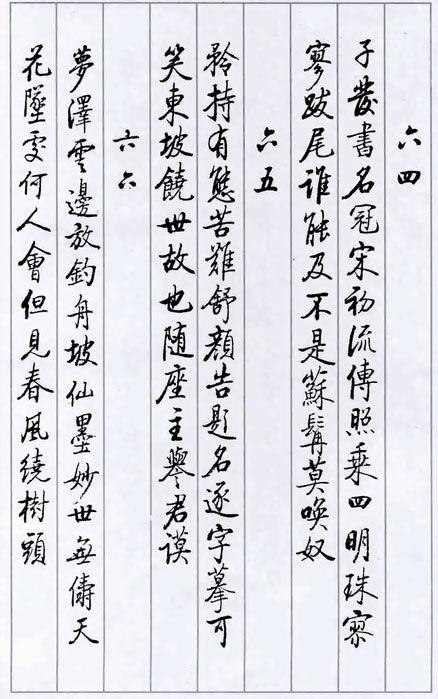 六四
子發書名冠宋初流傳照乘四明珠寥
寥跋尾誰能及不是蘇髯莫喚奴
六五
矜持有態苦難舒顏告題名逐字摹可
笑東坡饒世故也随座主譽君謨
六六
夢澤雲邊放釣舟坡仙墨妙世無儔天
花墜處何人會但見春風繞樹頭